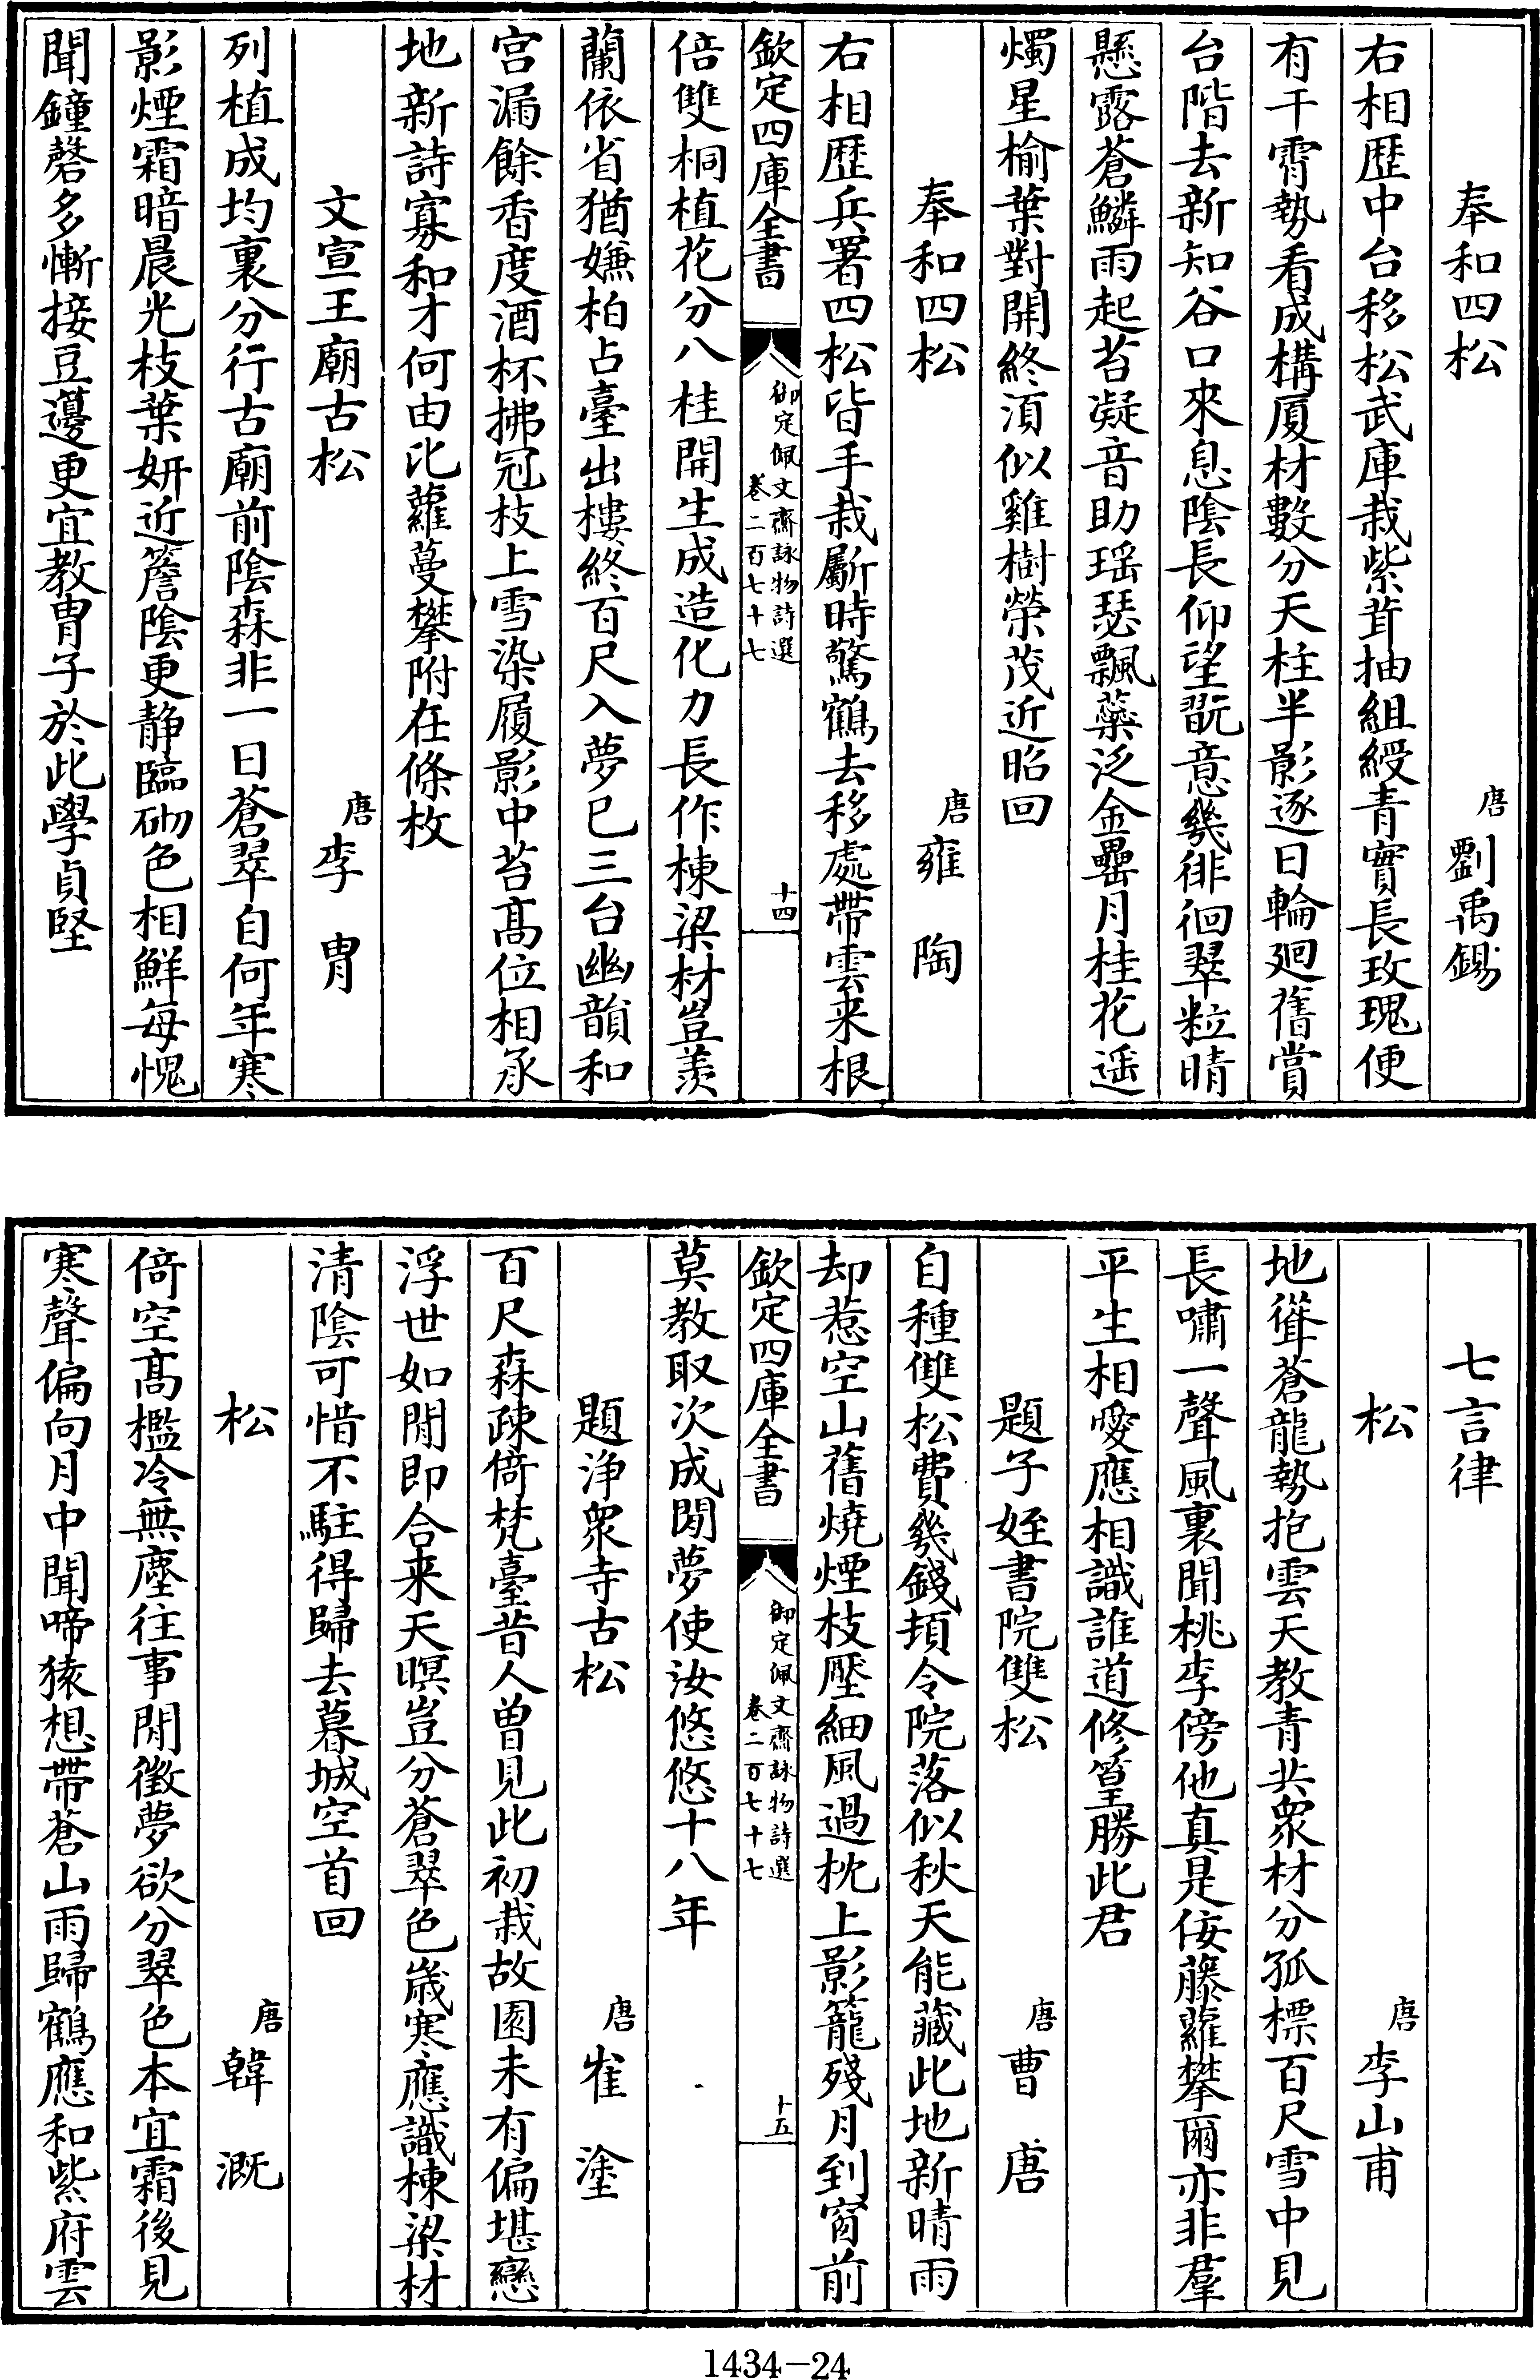 奉和四松　唐劉禹錫
右相歴中台移松武庫栽紫茸抽組綬青實長玫瑰便
有干霄勢看成構厦材數分天柱半影逐日輪迴舊賞
台階去新知谷口來息陰長仰望翫意幾徘徊翠粒晴
懸露蒼鱗雨起苔凝音助瑶瑟飄蘂泛金罍月桂花遥
燭星榆葉對開終湏似雞樹榮茂近昭回
奉和四松　唐雍陶
右相歴兵署四松皆手栽斸時驚鶴去移處帶雲来根
欽定四庫全書
御定佩文齋詠物詩選
卷二百七十七
十四
倍雙桐植花分八桂開生成造化力長作棟梁材豈羨
蘭依省猶嫌柏占臺出樓終百尺入夢已三台幽韻和
宫漏餘香度酒杯拂冠枝上雪染履影中苔髙位相承
地新詩寡和才何由比蘿蔓攀附在條枚
文宣王廟古松　唐李胄
列植成均裏分行古廟前陰森非一日蒼翠自何年寒
影煙霜暗晨光枝葉妍近簷陰更静臨砌色相鮮每愧
聞鐘磬多慚接豆籩更宜教胄子於此學貞堅
七言律
松　唐李山甫
地聳蒼龍勢抱雲天教青共衆材分孤標百尺雪中見
長嘯一聲風裏聞桃李傍他真是佞藤蘿攀爾亦非羣
平生相愛應相識誰道修篁勝此君
題子姪書院雙松　唐曹唐
自種雙松費幾錢頓令院落似秋天能藏此地新晴雨
却惹空山舊燒煙枝壓細風過枕上影籠殘月到窗前
欽定四庫全書
御定佩文齋詠物詩選
卷二百七十七
十五
莫教取次成閒夢使汝悠悠十八年
題浄衆寺古松　唐崔塗
百尺森疎倚梵臺昔人曽見此初栽故園未有偏堪戀
浮世如閒即合来天暝豈分蒼翠色嵗寒應識棟梁材
清陰可惜不駐得歸去暮城空首回
松　唐韓溉
倚空髙檻冷無塵往事閒徵夢欲分翠色本宜霜後見
寒聲偏向月中聞啼猿想帶蒼山雨歸鶴應和紫府雲
1434-24